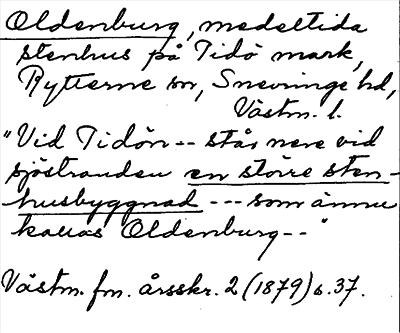 Oldenburg, medeltida
stenhus på Tidö mark,
Rytterne sn, Snevringe hd,
Västm. l.
"Vid Tidön -- står nere vid
sjöstranden en större sten-
husbyggnad --- som ännu
kallas Oldenburg --"
Västm. fm. årsskr. 2 (1879) s. 37.